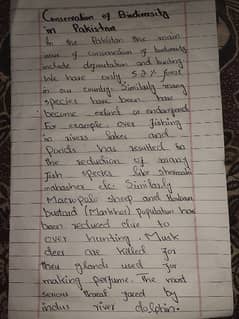 Conservation of Biodiversity
in Pakistan
In the Pakistan the main
issue of conservation of biodiversity
include deforestation and hunting.
We have only 5.2% forest
in our country. Similarly many
species have been
become extinct or endangered.
For example, over fishing
in rivers lakes and
Ponds has resulted in
the reduction of many
fish species like
mahasher etc. Similarly
Macropolo sheep and
bustard (Markhor) population have
been reduced due to
over hunting. Musk
deer are killed for
they glands used for
making perfume. The most
serious threat faced by
indus river dolphin.